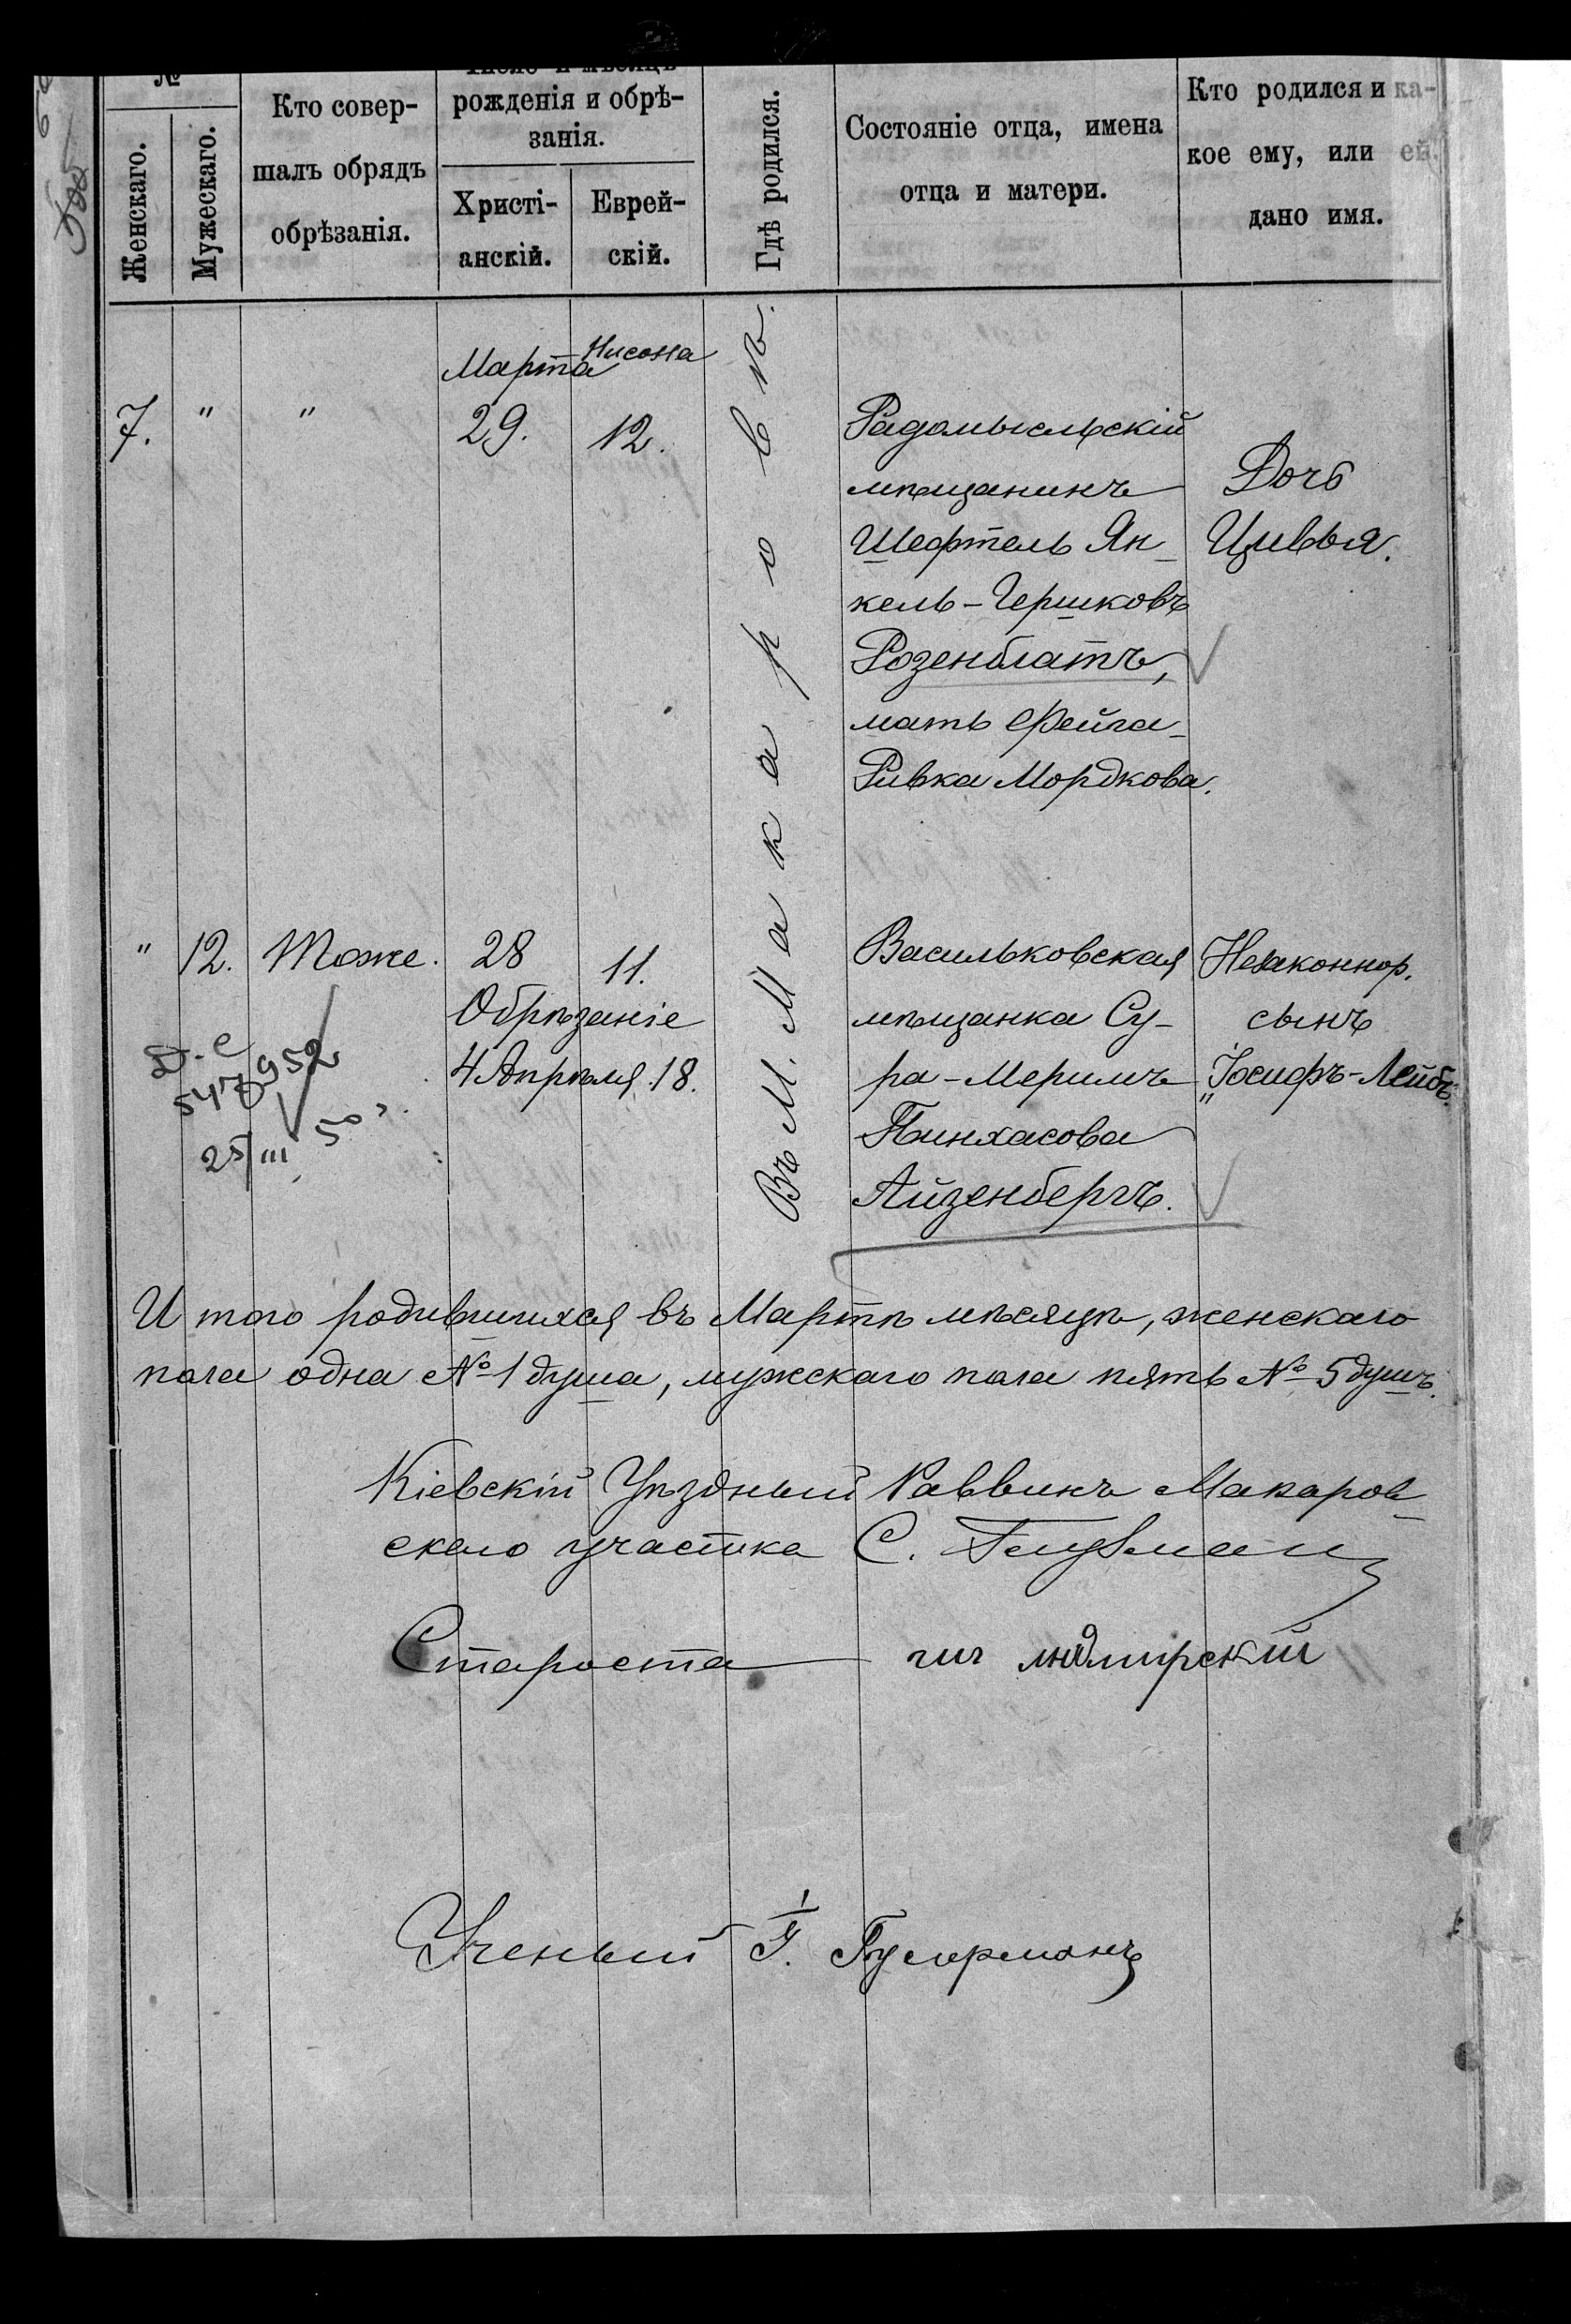 №
Женскаго.
Мужескаго.
Кто совер-
шалъ обрядъ
обрѣзанія.
Число и мѣсяцъ
рожденія и обрѣ-
занія.
Христі-
анскій.
Еврей-
скій.
Гдѣ родился.
Состояніе отца, имена
отца и матери.
Кто родился и ка-
кое ему, или ей
дано имя.
Марта
Нисона
7.
"
"
29.
12.
Въ М. Макаровѣ.
Радомысльскій
мѣщанинъ
Шефтель Ян-
кель-Гершковъ
Розенблатъ,
мать Фейга-
Ривка Мордкова.
Дочь
Цивья.
"
12.
Тоже.
28
11.
Обрѣзаніе
4 Апрѣля. 18.
Васильковская
мѣщанка Су-
ра-Меримъ
Пинхасова
Айзенбергъ.
Незаконнор.
сынъ
"Іосифъ-Лейбъ.
952
25/III 50
И того родившихся въ Мартѣ мѣсяцѣ, женскаго
пола одна № 1 душа, мужскаго пола пять № 5 душъ.
Кіевскій Уѣздный Раввинъ Макаров-
скаго участка С.
Староста
Ученый